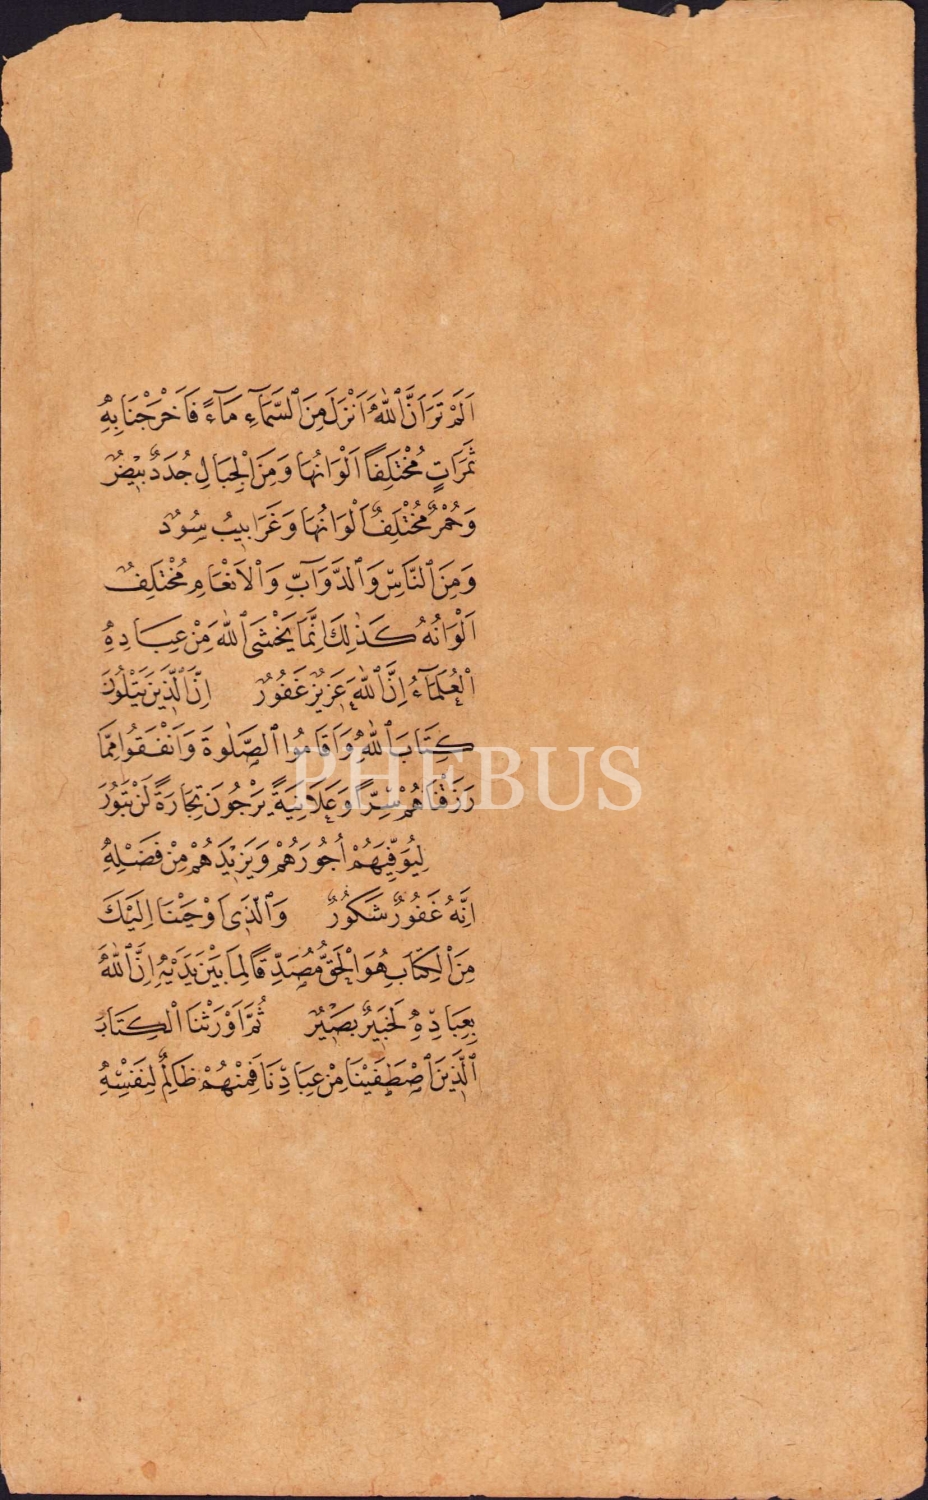 اَلَمْ تَرَ اَنَّ ٱللّٰهَ اَنْزَلَ مِنَ ٱلسَّمَآءِ مَآءً فَاَخْرَجْنَا بِهٖ
ثَمَرَاتٍ مُخْتَلِفًا اَلْوَانُهَا وَمِنَ الْجِبَالِ جُدَدٌ بٖيضٌ
وَحُمْرٌ مُخْتَلِفٌ اَلْوَانُهَا وَغَرَابٖيبُ سُودٌ
وَمِنَ ٱلنَّاسِ وَٱلدَّوَآبِّ وَٱلْاَنْعَامِ مُخْتَلِفٌ
اَلْوَانُهُ كَذٰلِكَ اِنَّمَا يَخْشَى ٱللّٰهَ مِنْ عِبَادِهِ
الْعُلَمَآءُ اِنَّ ٱللّٰهَ عَزٖيزٌ غَفُورٌ اِنَّ ٱلَّذٖينَ يَتْلُونَ
كِتَابَ ٱللّٰهِ وَاَقَامُوا ٱلصَّلٰوةَ وَاَنْفَقُوا مِمَّا
رَزَقْنَاهُمْ سِرًّا وَعَلَانِيَةً يَرْجُونَ تِجَارَةً لَنْ تَبُورَ
لِيُوَفِّيَهُمْ اُجُورَهُمْ وَيَزٖيدَهُمْ مِنْ فَضْلِهٖ
اِنَّهُ غَفُورٌ شَكُورٌ وَٱلَّذٖى اَوْحَيْنَا اِلَيْكَ
مِنَ ٱلْكِتَابِ هُوَ الْحَقُّ مُصَدِّقًا لِمَا بَيْنَ يَدَيْهِ اِنَّ ٱللّٰهَ
بِعِبَادِهٖ لَخَبٖيرٌ بَصٖيرٌ ثُمَّ اَوْرَثْنَا الْكِتَابَ
ٱلَّذٖينَ ٱصْطَفَيْنَا مِنْ عِبَادِنَا فَمِنْهُمْ ظَالِمٌ لِنَفْسِهٖ
PHEBUS